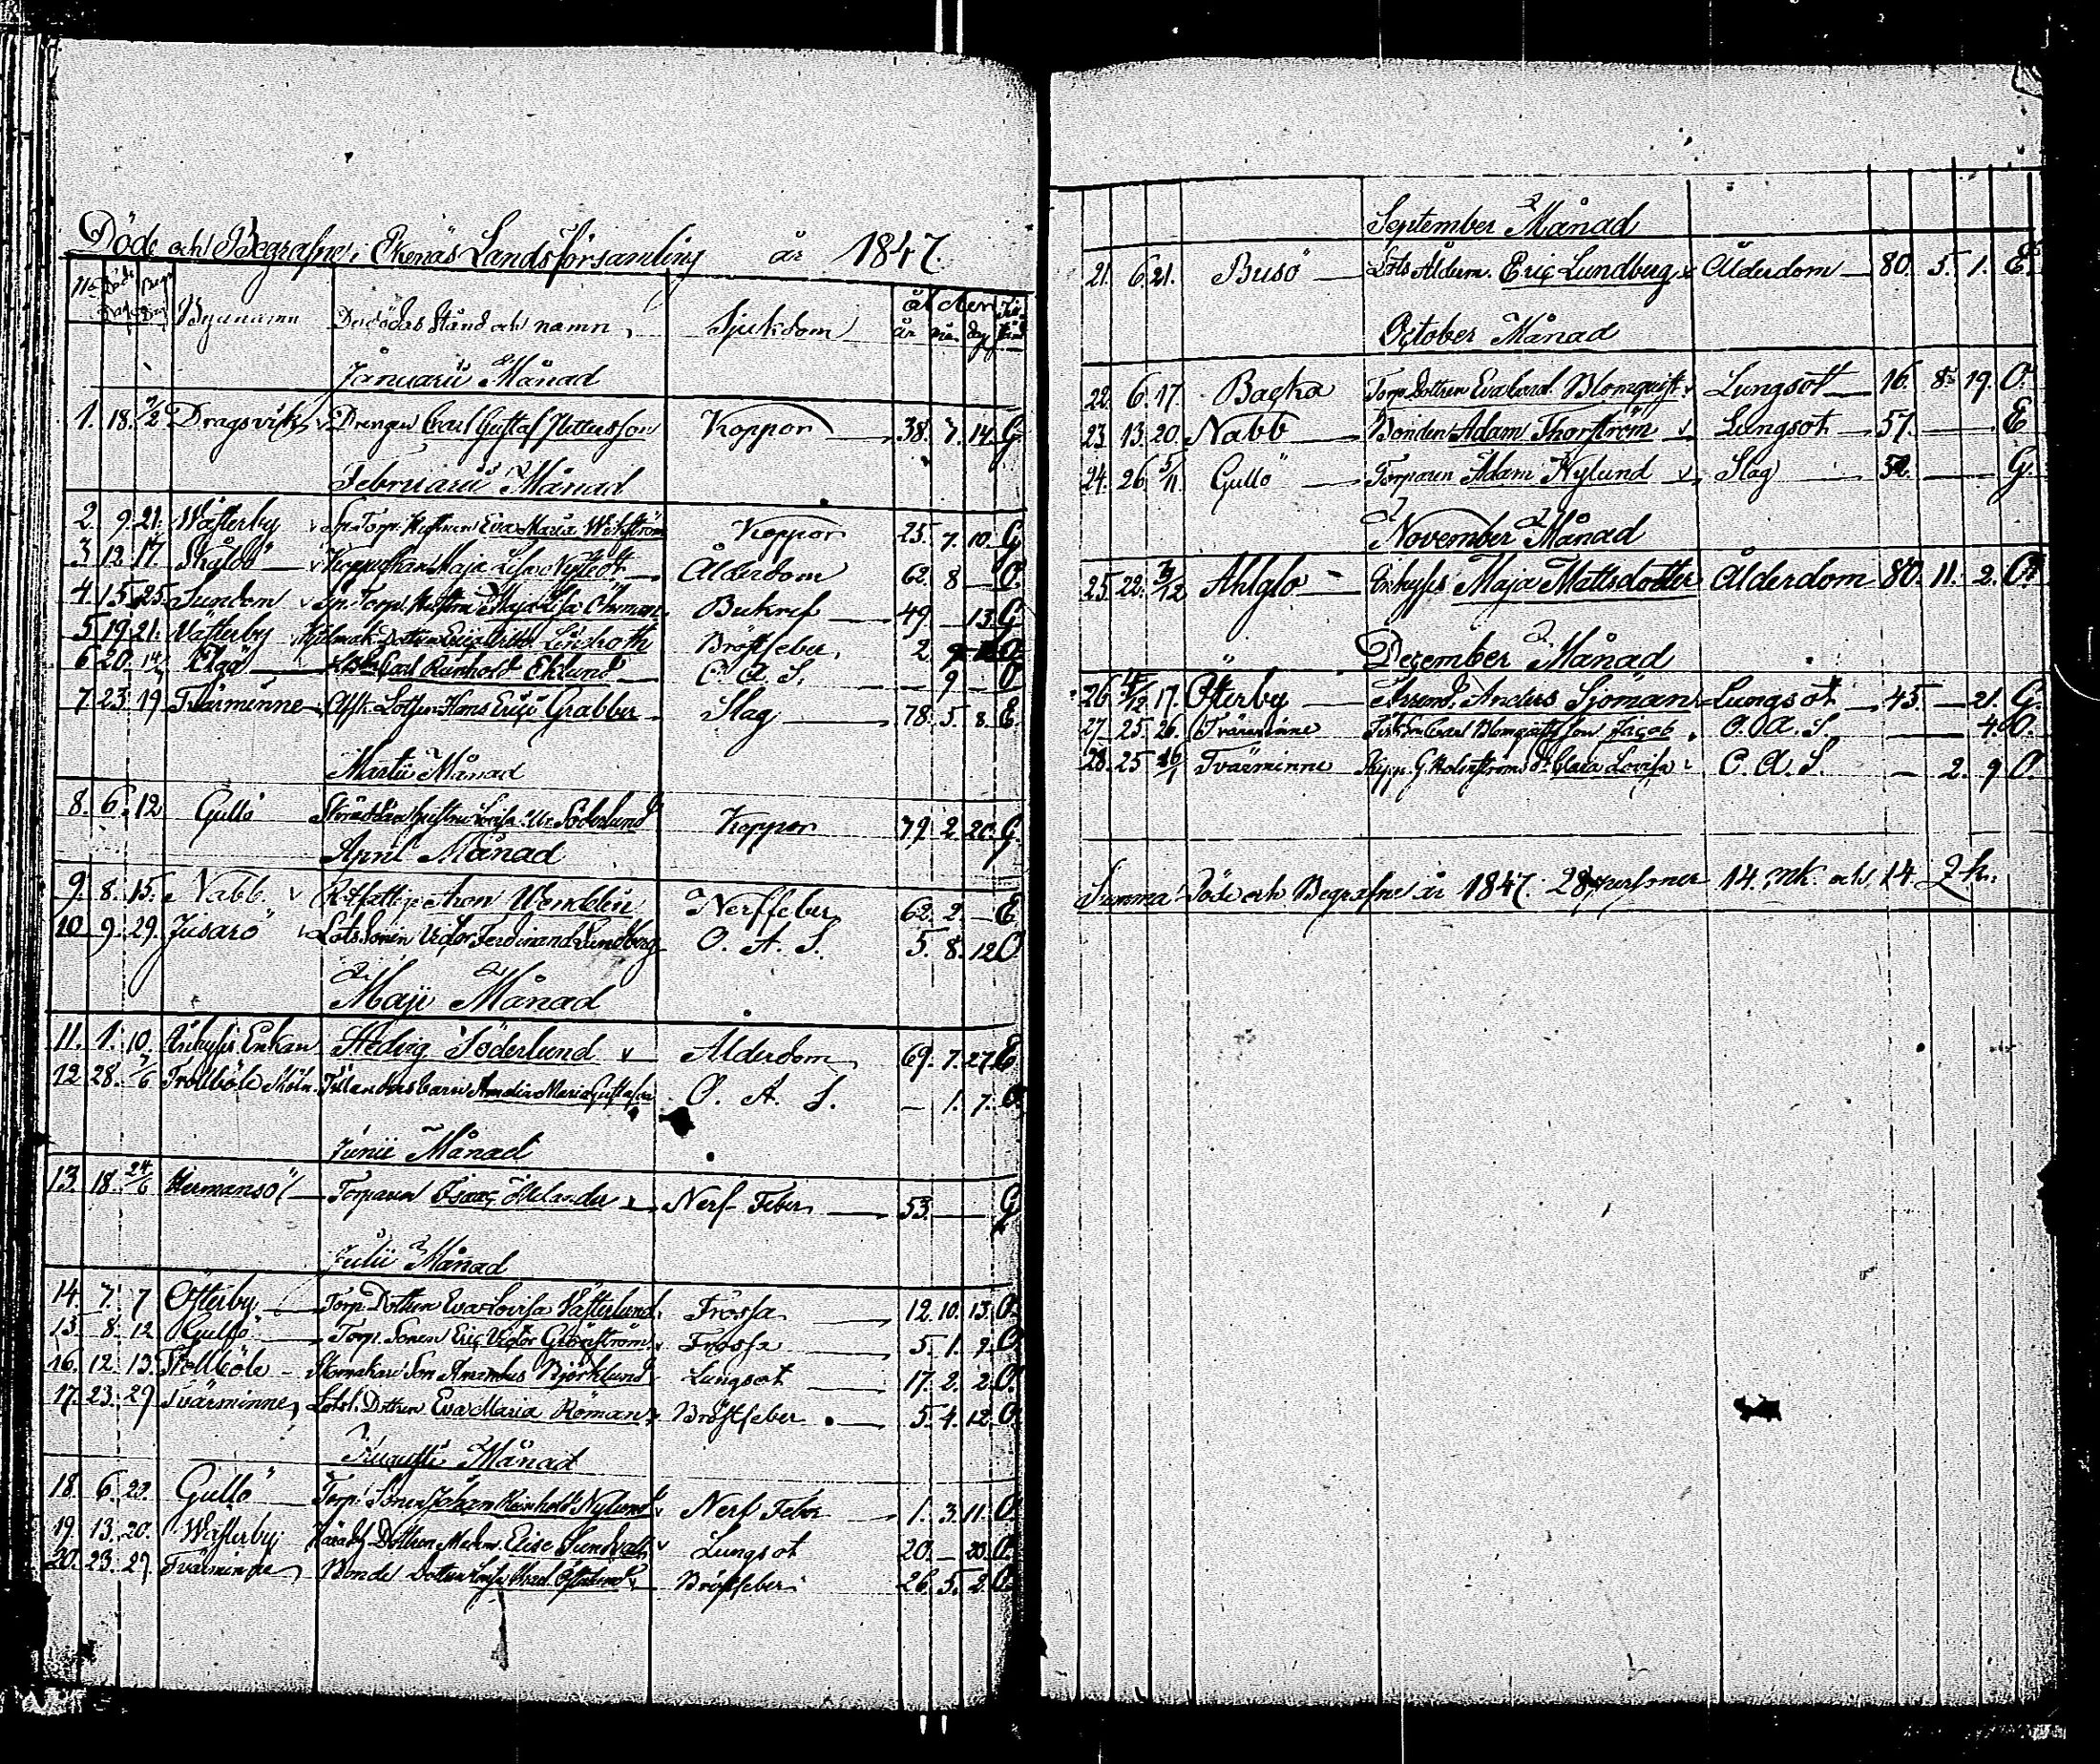 Döde och Begrafne i Ekenäs Landsförsamling år 1847.
No Döds dag Begr. dag Bynamn Den dödas Stånd och namn Sjukdom ålder år mån dag
Januarii Månad
1. 18. 7/2 Dragsvik Drengen Carl Gustaf Pettersson Koppor 38. 7. 14. G
Februarii Månad
2. 9. 21. Wästerby Sp. Torp. Hustrun Eva Maria Wikström Koppor 25. 7. 10. G
3 12 17. Skåldö Maja Lisa Nystedt Ålderdom 62. 8 — E.
4. 15. 25. Sundom Sp. Torp. Hustru Maja Lisa Öhrman Bukref 49. — 13. G
5 19. 21. Västerby Dottren Lindroth Bröstfeber 2 O
6 20. Elgö Carl Reinhold Eklund O. A. S. — 9 — O
7. 23. 19 Tvärminne Afsk. Lotsen Hans Eric Grabber Slag 78. 5. 8. E
Martii Månad
8. 6. 12 Gullö Hustru Lovisa Ur. Söderlund Koppor 79. 2. 20. G.
April Månad
9. 8. 15. Nabb. Rotfattige Aron Wendelin Nerffeber 62. 2. — E
10 9. 29. Jusarö Lots Sonen Victor Ferdinand Lundberg O. A. S. 5. 8. 12 O
Maji Månad
11. 1. 10 Inhyses Enkan Hedvig Söderlund Ålderdom 69. 7. 27. E
12 28. 7/6 Trollböle Amalia Maria Gustafva O. A. S. — 1. 7. O
Junii Månad
13. 18. 24/6 Hermansö Torparen Isaac Melander Nerf Feber 53. — — G
Julii Månad
14. 7. 7 Österby Torp. Dottren Eva Lovisa Västerlund Frossa 12. 10. 13. O.
15. 8. 12 Gullö Torp. Sonen Eric Victor Grönström Frossa 5. 1. 2. O
16. 12. 13. Trollböle Skomakare Son Amandus Björklund Lungsot 17. 2. 2. O.
17. 23. 29 Tvärminne Lots. Dottren Eva Maria Röman Bröstfeber 5. 4. 12. O
Augusti Månad
18. 6. 22. Gullö Torp. Sonen Johan Reinhold Nylund Nerf Feber 1. 3. 11. O
19. 13. 20. Wästerby Dottren Elise Sundvall Lungsot 20. — 20. O.
20. 23. 29. Tvärminne Bonde Dottren Bröstfeber 26. 5. 2. O.
September Månad
21. 6 21. Busö Lots Ålderm. Eric Lundberg Ålderdom 80. 5. 1. E
October Månad
22. 6. 17. Backa Torp. Dottren Eva Carol. Blomquist Lungsot 16. 8 19. O.
23. 13. 20. Nabb Bonden Adam Thorström Lungsot 57. — E
24. 26 5/11 Gullö Torparen Adam Nylund Slag — G.
November Månad
25. 22. Ahlglo Inhyses Maja Mattsdotter Ålderdom 80. 11. 2.
December Månad
26. 17. Österby Arrend. Anders Sjöman Lungsot 45. — 21. G.
27. 25. 26. Tvärminne Carl Blomquists son Jacob O. A. S. — — 4. O.
28. 25 Tvärminne G. Holmströms d. Clara Lovisa O. A. S. — 2. 9 O.
Summa Döde och Begrafne år 1847. 28 personer 14. Mk. och 14 Qk.